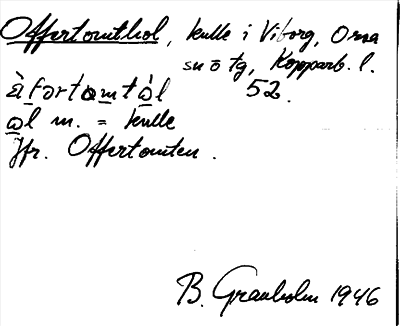 Offertomthol, kulle i Viborg, Orsa
sn o tg, Kopparb. l.
àfərtomtòl 52.
ol m. = kulle
Jfr. Offertomten.
B. Granholm 1946